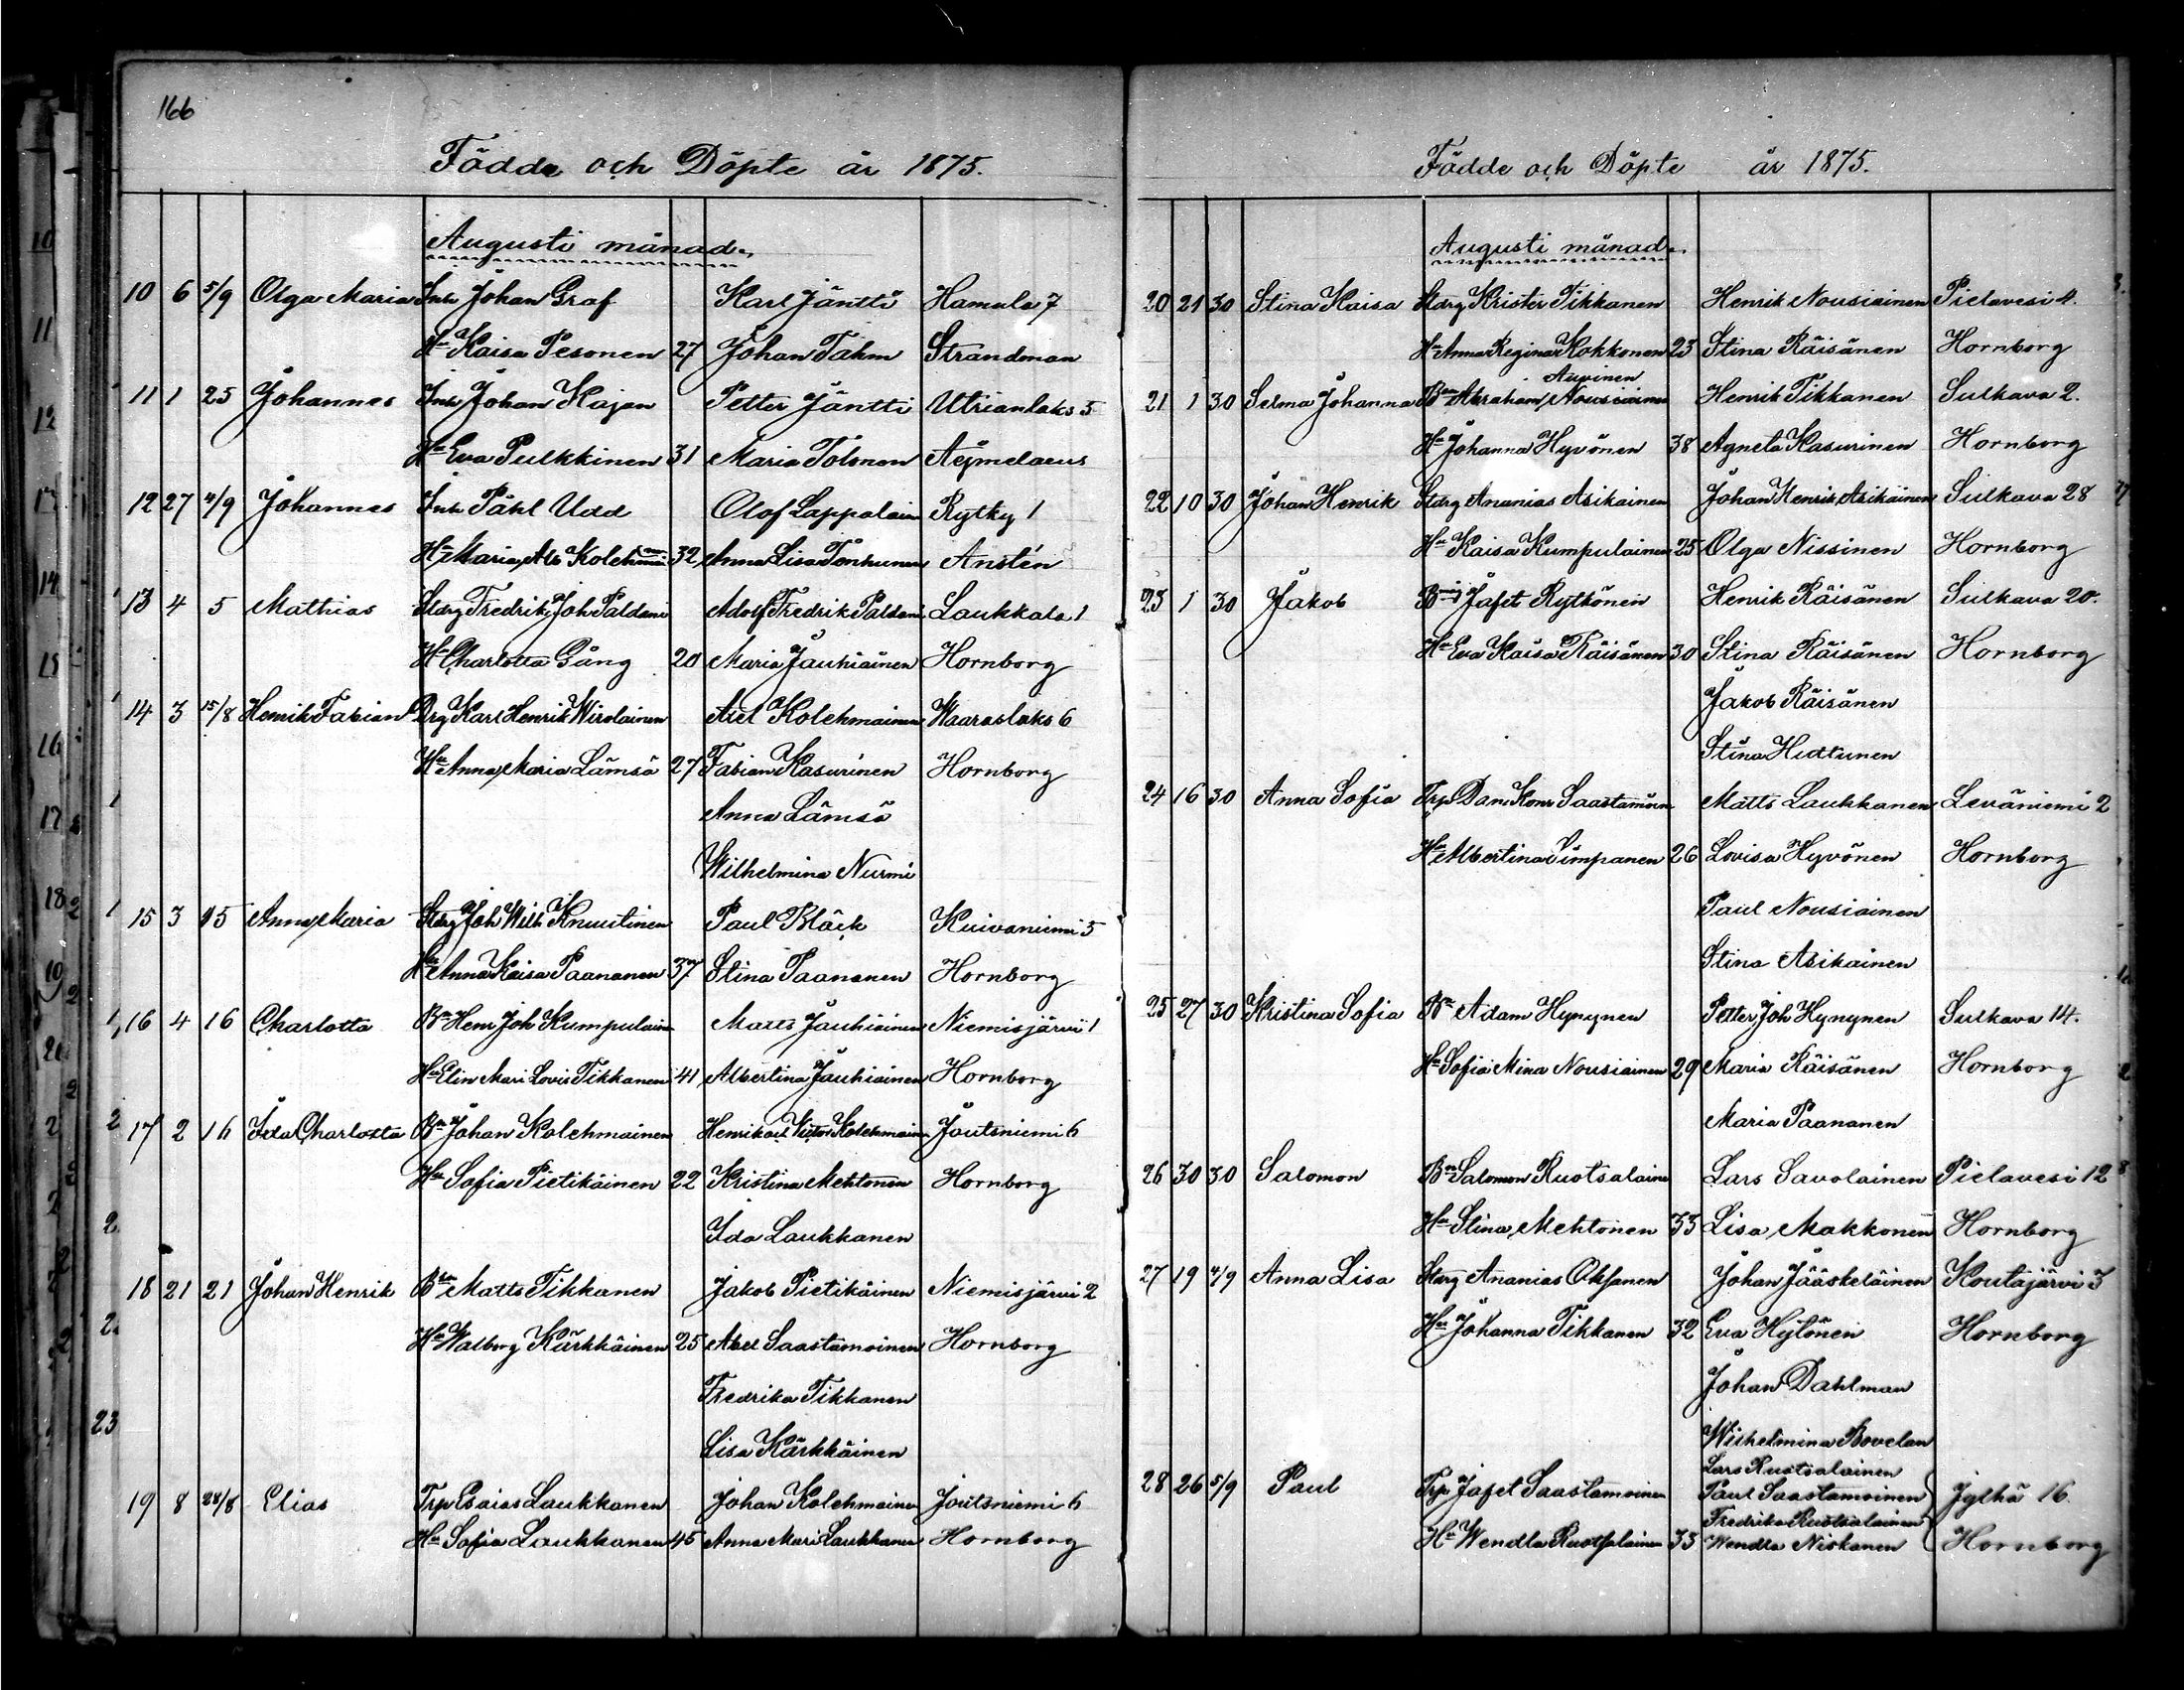 166
Födde och Döpte år 1875.
Augusti månad.
10 6 5/9 Olga Maria Inh Johan Graf Karl Jäntti Hamula 7
Hu Kaisa Pesonen 27 Johan Tahm Strandman
11 1 25 Johannes Inh Johan Kajan Petter Jäntti Utrianlaks 5
Hu Eva Pulkkinen 31 Maria Tolonen Aejmelaeus
12 27 4/9 Johannes Inh Påhl Udd Olof Lappalain Rytky 1
Hu Maria Alb Kolehmai 32 Anna Lisa Tenhunen Anstén
13 4 5 Mathias Stdrg Fredrik Joh Paldani Adolf Fredrik Paldan Laukkala 1
Hu Charlotta Gång 20 Maria Jauhiainen Hornborg
14 3 15/8 Henrik Fabian Drg Karl Henrik Wirolainen Axel Kolehmainen Waaraslaks 6
Hu Anna Maria Lämsä 27 Fabian Kasurinen Hornborg
Anna Lämsä
Wilhelmina Nurmi
15 3 15 Anna Maria Stdrg Joh Wilh Knuutinen Paul Bläck Kuivaniemi 5
Hu Anna Kaisa Paananen 37 Stina Paananen Hornborg
16 4 16 Charlotta Bn Henr Joh Kumpulain Matts Jauhiainen Niemisjärvi 1
Hu Elin Mari Lovis Tikkanen 41 Albertina Jauhiainen Hornborg
17 2 16 Ida Charlotta Bn Johan Kolehmainen Henrik och Victor Kolehmain Joutsniemi 6
Hu Sofia Pietikäinen 22 Kristina Mehtonen Hornborg
Ida Laukkanen
18 21 21 Johan Henrik Bn Matts Tikkanen Jakob Pietikäinen Niemisjärvi 2
Hu Walborg Kärkkäinen 25 Abel Saastamoinen Hornborg
Fredrika Tikkanen
Lisa Kärkkäinen
19 8 28/8 Elias Trp Esaias Laukkanen Johan Kolehmainen Joutsniemi 6
Hu Sofia Laukkanen 45 Anna Mari Laukkanen Hornborg
Födde och Döpte år 1875.
Augusti månad.
20 21 30 Stina Kaisa Stdrg Krister Tikkanen Henrik Nousiainen Pielavesi 4.
Hu Anna Regina Kokkonen 23 Stina Räisänen Hornborg
Auvinen
21 1 30 Selma Johanna Bn Abraham Nousiainen Henrik Tikkanen Sulkava 2.
Hu Johanna Hyvönen 38 Agneta Kasurinen Hornborg
22 10 30 Johan Henrik Stdrg Ananias Asikainen Johan Henrik Asikainen Sulkava 28
Hu Kaisa Kumpulainen 25 Olga Nissinen Hornborg
23 1 30 Jakob Bmåg Jafet Rytkönen Henrik Räisänen Sulkava 20.
Hu Eva Kaisa Räisänen 30 Stina Räisänen Hornborg
Jakob Räisänen
Stina Huttunen
24 16 30 Anna Sofia Trp Dan Konr Saastamoin Matts Laukkanen Leväniemi 2
Hu Albertina Pimpanen 26 Lovisa Hyvönen Hornborg
Paul Nousiainen
Stina Asikainen
25 27 30 Kristina Sofia Bn Adam Hynynen Petter Joh Hynynen Sulkava 14.
Hu Sofia Mina Nousiainen 29 Maria Räisänen Hornborg
Maria Paananen
26 30 30 Salomon Bn Salomon Ruotsalain Lars Savolainen Pielavesi 12
Hu Stina Mehtonen 33 Lisa Makkonen Hornborg
27 19 4/9 Anna Lisa Stdrg Ananias Oksanen Johan Jääskeläinen Koutajärvi 3
Hu Johanna Tikkanen 32 Eva Hytönen Hornborg
Johan Dahlman
Wilhelmina Bovelan
Lars Ruotsalainen
28 26 5/9 Paul Trp Jafet Saastamoinen Paul Saastamoinen Jylhä 16.
Fredrika Ruotsalainen
Hu Wendla Ruotsalainen 33 Wendla Niskanen Hornborg